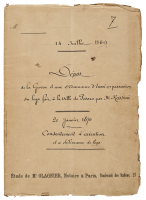 7
14 Juillet 1869
Dépôt
de la Grosse d'une Ordonnance d'envoi en possession
du legs fait à la Ville de
20 Janvier 1870
Consentement à exécution
et à délivrance de legs
Étude de Me OLAGNIER, Notaire à Paris, Boulevard des Italiens, 27